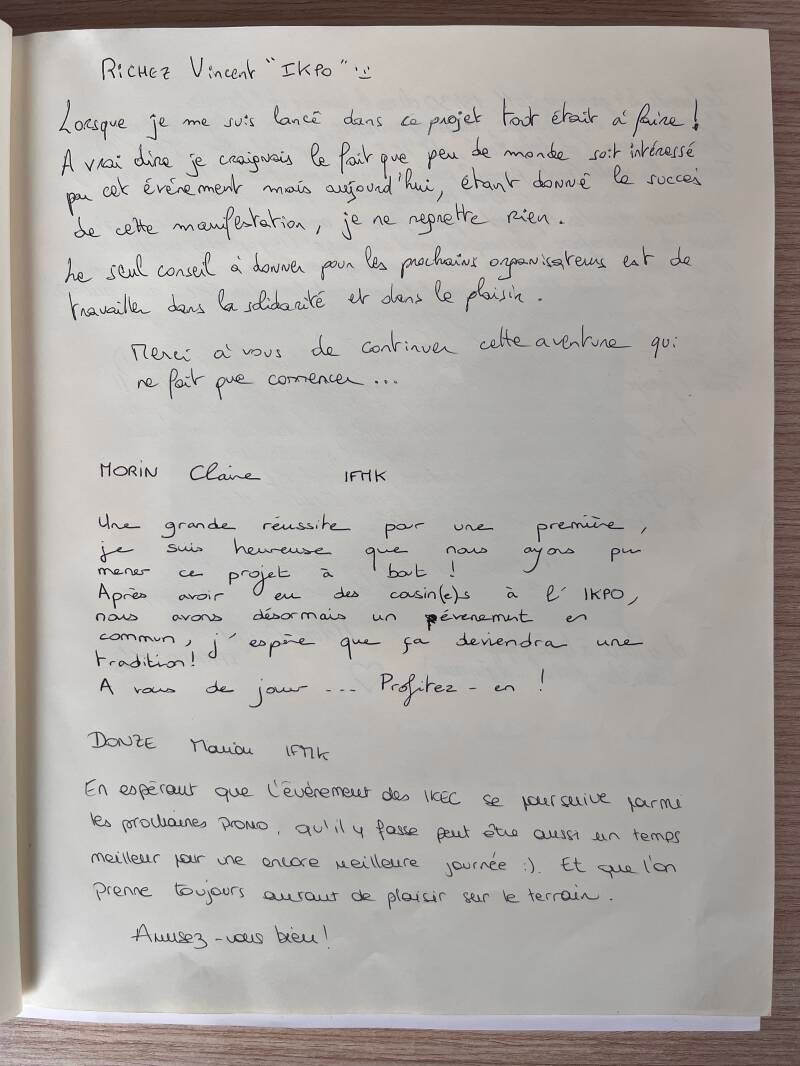 RICHEZ Vincent "IKPO" :)
Lorsque je me suis lancé dans ce projet tout était à faire !
A vrai dire je craignais le fait que peu de monde soit intéressé
par cet événement mais aujourd'hui, étant donné le succès
de cette manifestation, je ne regrette rien.
Le seul conseil à donner pour les prochains organisateurs est de
travailler dans la solidarité et dans le plaisir.
Merci à vous de continuer cette aventure qui
ne fait que comencer ...
MORIN Claire IFMK
Une grande réussite pour une première,
je suis heureuse que nous ayons pu
mener ce projet à bout !
Après avoir eu des casin(e)s à l'IKPO,
nous avons désormais un évenement en
commun, j'espère que ça deviendra une
tradition !
A vous de jouer ... Profitez-en !
DONZE Marion IFMK
En espérant que l'événement des IKEC se poursuive parmi
les prochaines PROMO, qu'il y fasse peut être aussi un temps
meilleur pour une encore meilleure journée :). Et que l'on
prenne toujours autant de plaisir sur le terrain.
Amusez-vous bien !